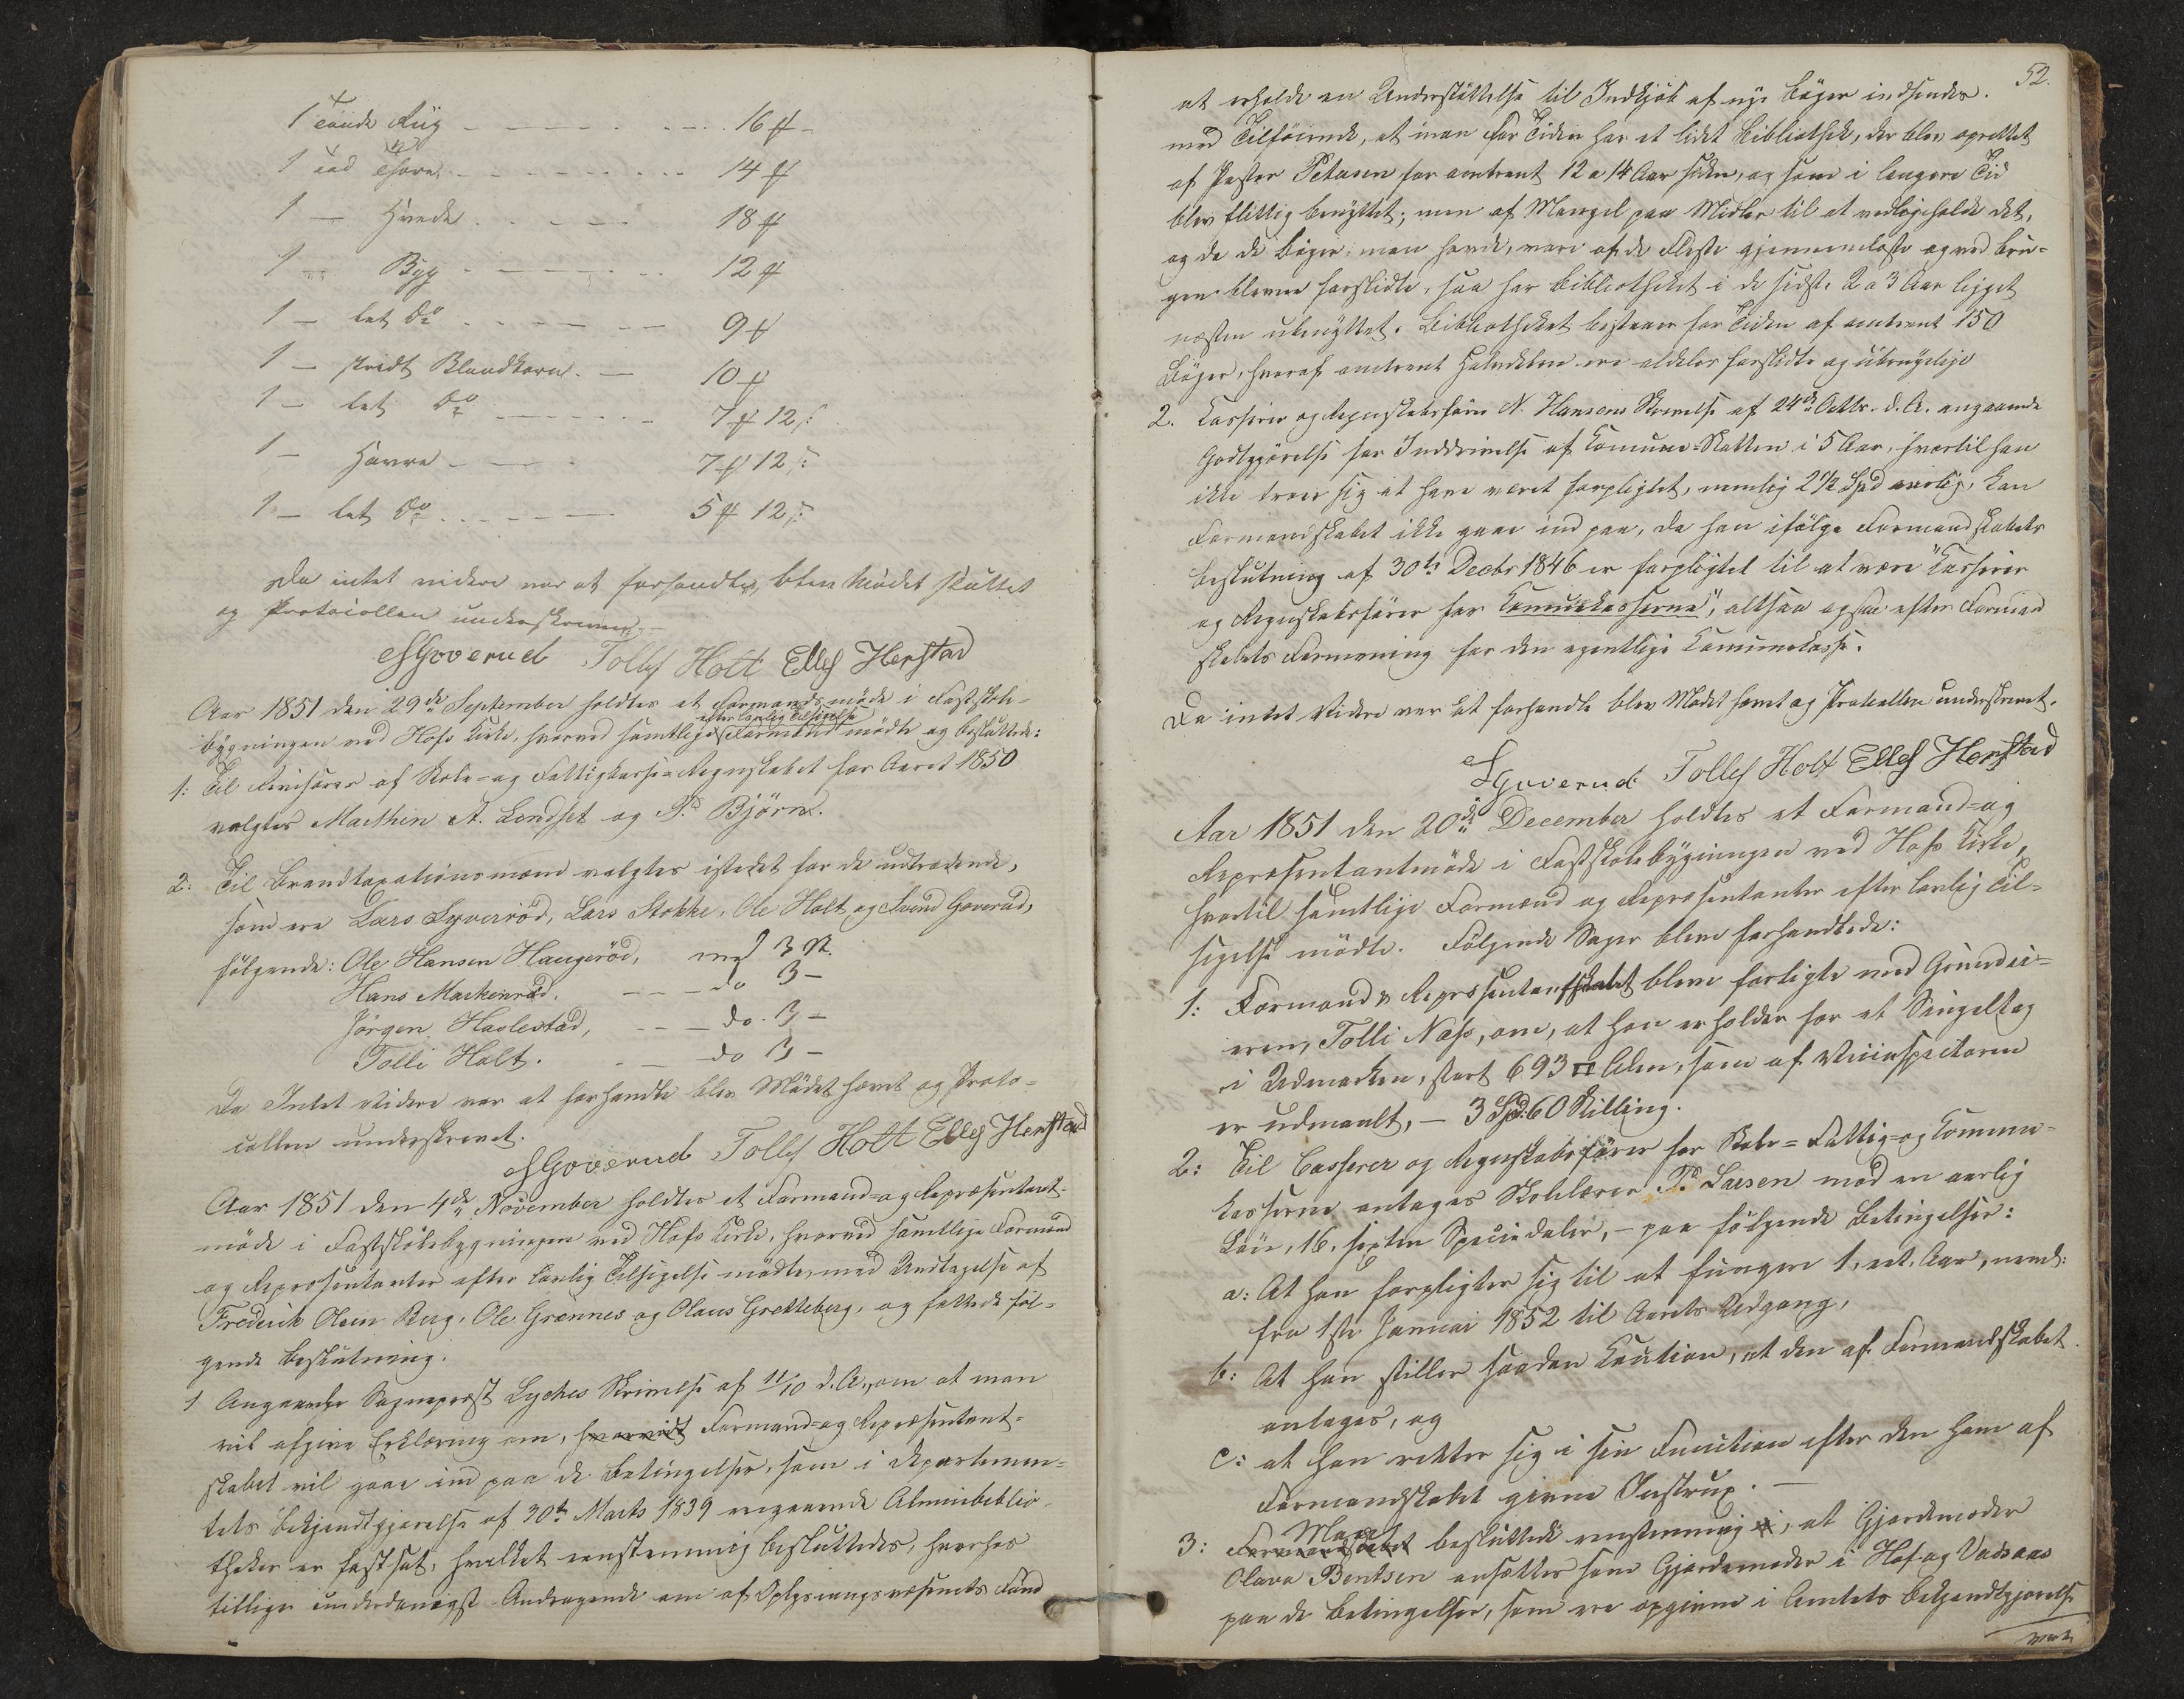 1 Tönde Rug - - - - - - 16 #
1 Td Thore - - - - - - 14 #
1 - Hvede - - - - 18 #
1 - Byg - - - - - 12 #
1 - let Do - - - - - 9 #
1 - stridt Blandkorn - - 10 #
1 - let Do - - - - - 7 # 12 ß
1 - Havre - - - - 7 # 12 ß
1 - let Do - - - - - 5 # 12 ß
Da intet videre var at forhandle, blev Mödet sluttet
og Protocollen underskreven.
SGoverud Tollef Holt Ellef Henstad
Aar 1851 den 29de September holdtes et Formandsmöde i Fastskole-
efter lovlig Tilsigelse
bygningen ved Hofs Kirke, hvorved samtlige Formænd mödte og besluttede:
1: Til Revisorer af Skole- og Fattigkasse-Regnskabet for Aaret 1850
valgtes Mathin A. Lendset og P. Björn.
2: Til Brandtaxationsmænd valgtes istedet for de udtrædende,
som ere Lars Syveröd, Lars Stokke, Ole Holt og Svend Goverud,
fölgende: Ole Hansen Haugeröd, med 3 St.
Hans Mackenröd. - - - do 3 -
Jörgen Haslestad, - - - do. 3 -
Tolli Holt. - - do 3 -
Da Intet videre var at forhandle blev Mödet hævet og Proto-
collen underskrevet.
SGoverud Tollef Holt Ellef Henstad
Aar 1851 den 4de November holdtes et Formand- og Repræsentant-
möde i Fastskolebygningen ved Hofs Kirke, hvorved samtlige Formænd
og Repræsentanter efter lovlig Tilsigelse mödte, med Undtagelse af
Frederik Olsen Berg, Ole Grønnes og Olaus Grekteberg, og fattede föl-
gende Beslutning.
1 Angaaende Sogneprest Lyches Skrivelse af 11/10 d. A., om at man
vil afgive Erklæring om, hvorvidt Formand- og Repræsentant-
skabet vil gaae ind paa de Betingelser, som i Departemen-
tets Bekjendtgjørelse af 30te Marts 1839 angaaende Almuebiblio-
theker er fastsat, hvilket eenstemmig besluttedes, hvorhos
tillige underdanigst Andragende om af Oplysningsvæsenets Fond
52.
at erholde en Understöttelse til Indkjöb af nye Böger indsendes.
med Tilföiende, at man for Tiden har et lidet Bibliothek, der blev oprettet
af Pastor Petersen for omtrent 12 a 14 Aar siden, og som i længere Tid
blev flittig benyttet; men af Mangel paa Midler til at vedligeholde det,
og da de Böger, man havde, vare af de Fleste gjennemlæste og ved Bru-
gen blevne forslidte, saa har Bibliotheket i de sidste 2 a 3 Aar ligget
næsten ubenyttet. Bibliotheket bestaaer for Tiden af omtrent 150
Böger, hvoraf omtrent Halvdelen ere aldeles forslidte og ubrugelige
2. Casserer og Regnskabsförer N. Hansens Skrivelse af 24de Octbr. d. A. angaaende
Godtgjörelse for Inddrivelse af Comune-Skatten i 5 Aar, hvortil han
ikke troer sig at have været forpligtet, nemlig 2 1/2 Spd aarlig, kan
Formandskabet ikke gaae ind paa, da han ifölge Formandskabets
Beslutning af 30te Decbr 1846 er forpligtet til at være "Casserer
og Regnskabsförer for Comunekasserne", altsaa ogsaa efter Formand
skabets Formening for den egentlige Comunekasse.
Da intet Videre var at forhandle blev Mödet hævet og Protocollen underskrevet.
SGoverud Tollef Holt Ellef Henstad
Aar 1851 den 20de December holdtes et Formand- og
Repræsentantmöde i Fastskolebygningen ved Hofs Kirke,
hvortil samtlige Formænd og Repræsentanter efter lovlig Til-
sigelse mödte. Fölgende Sager bleve forhandlede:
1: Formand & Repræsentantskabet bleve forligte med Grundei-
eren, Tolli Næss, om, at han erholder for et Singeltag
i Udmarken, stort 693 □ Alen, som af Veiinspecteuren
er udmaalt, - 3 Spd. 60 Skilling.
2: Til Casserer og Regnskabsförer for Skole- Fattig- og Commune-
kasserne antages Skolelærer P. Larsen mod en aarlig
Lön, 16, sexten Speciedaler, - paa fölgende Betingelser:
a: At han forpligter sig til at fungere 1, eet, Aar, neml:
fra 1ste Januar 1852 til Aarets Udgang,
b: At han stiller saadan Caution, at den af Formandskabet
antages, og
c: at han retter sig i sin Function efter den ham af
Formandskabet givne Instrux. -
Man
3: Formandskabet besluttede eenstemmig, at Gjordemoder
Olava Bentsen ansættes som Gjordemoder i Hof og Vadsaas
paa de Betingelser, som ere opgivne i Amtets Bekjendtgjørelse